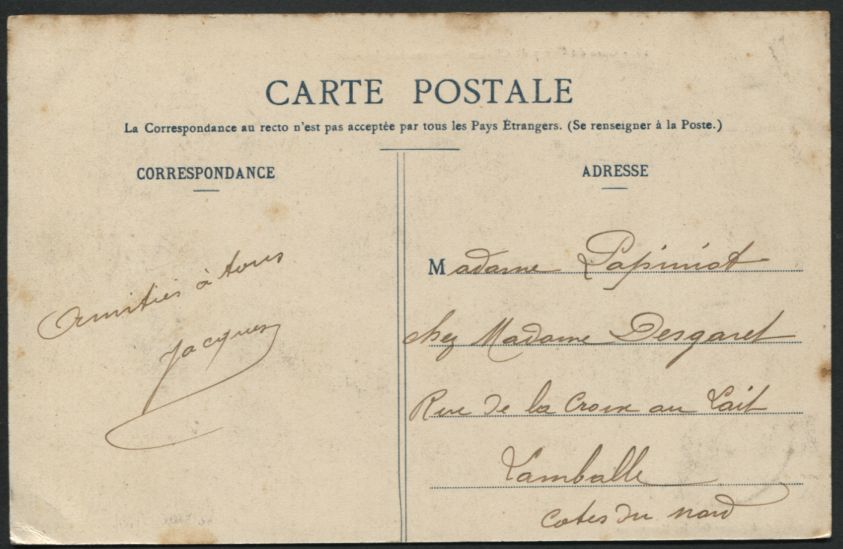 CARTE POSTALE
La Correspondance au recto n'est pas acceptée par tous les Pays Étrangers. (Se renseigner à la Poste.)
CORRESPONDANCE
Amitiés à tous
Jacques
ADRESSE
Madame Papiniot
chez Madame Desgaret
Rue de la Croix au Lait
Lamballe
Cotes du nord